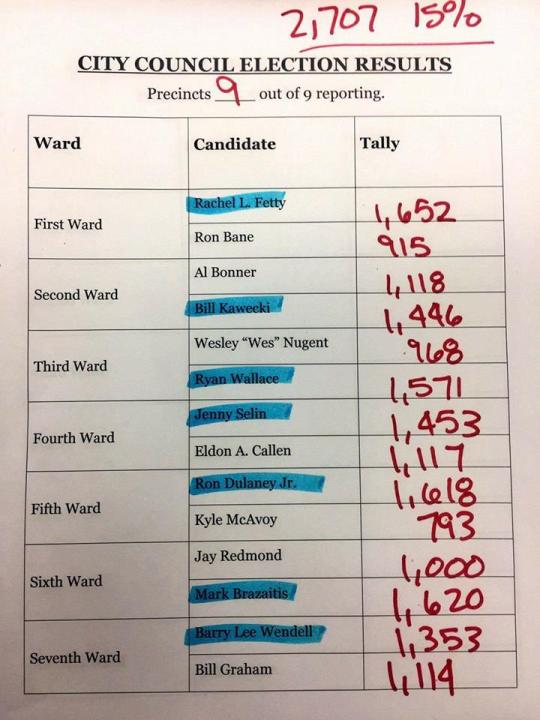 2,707 15%
CITY COUNCIL ELECTION RESULTS
Precincts 9 out of 9 reporting.
Ward Candidate Tally
First Ward
Rachel L. Fetty 1,652
Ron Bane 915
Second Ward
Al Bonner 1,118
Bill Kawecki 1,446
Third Ward
Wesley “Wes” Nugent 968
Ryan Wallace 1,571
Fourth Ward
Jenny Selin 1,453
Eldon A. Callen 1,117
Fifth Ward
Ron Dulaney Jr. 1,618
Kyle McAvoy 793
Sixth Ward
Jay Redmond 1,000
Mark Brazaitis 1,620
Seventh Ward
Barry Lee Wendell 1,353
Bill Graham 1,114